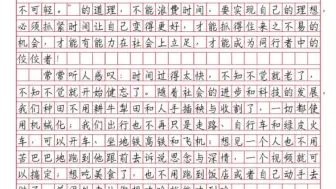 不可轻，”的道理，不能浪费时间，要实现自己的理想，
必须抓紧时间让自己变得更好，才能抓得住来之不易的
机会，才能有能力在社会上立足，才能成为同行者中的
佼佼者！
常常听人感叹：时间过得太快，不知不觉就老了，
不知不觉就开始健忘了。随着社会的进步和科技的发展，
我们种田不用耕牛犁田和人手插秧与收割了，一切都使
用机械化；我们出行也不再只是走路、自行车和绿皮火
车，可以开车、坐地铁高铁和飞机；想见一个人也不用
苦巴巴地跑到她跟前去诉说思念与深情，一个视频就可
以搞定；想吃美食了，也不用跑到饭店或者自己动手去